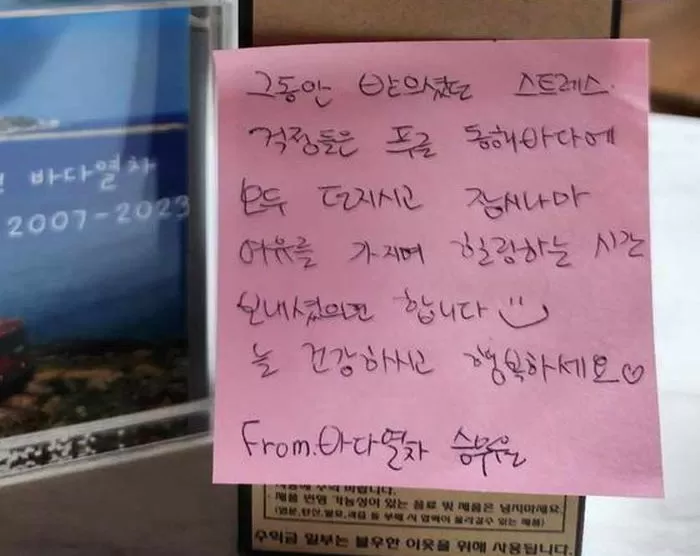 바다열차
2007-2023
그동안 받으셨던 스트레스.
걱정들은 푸른 동해바다에
모두 던지시고 잠시나마
여유를 가지며 힐링하는 시간
보내셨으면 합니다
늘 건강하시고 행복하세요♡
From.바다열차 승무원
바랍니다.
- 제품 변형 가능성이 있는 음료 및 제품은 넣지마세요.
등 부패 시 압력이 올라갈수 있는 제품)
수익금 일부는 불우한 이웃을 위해 사용됩니다.